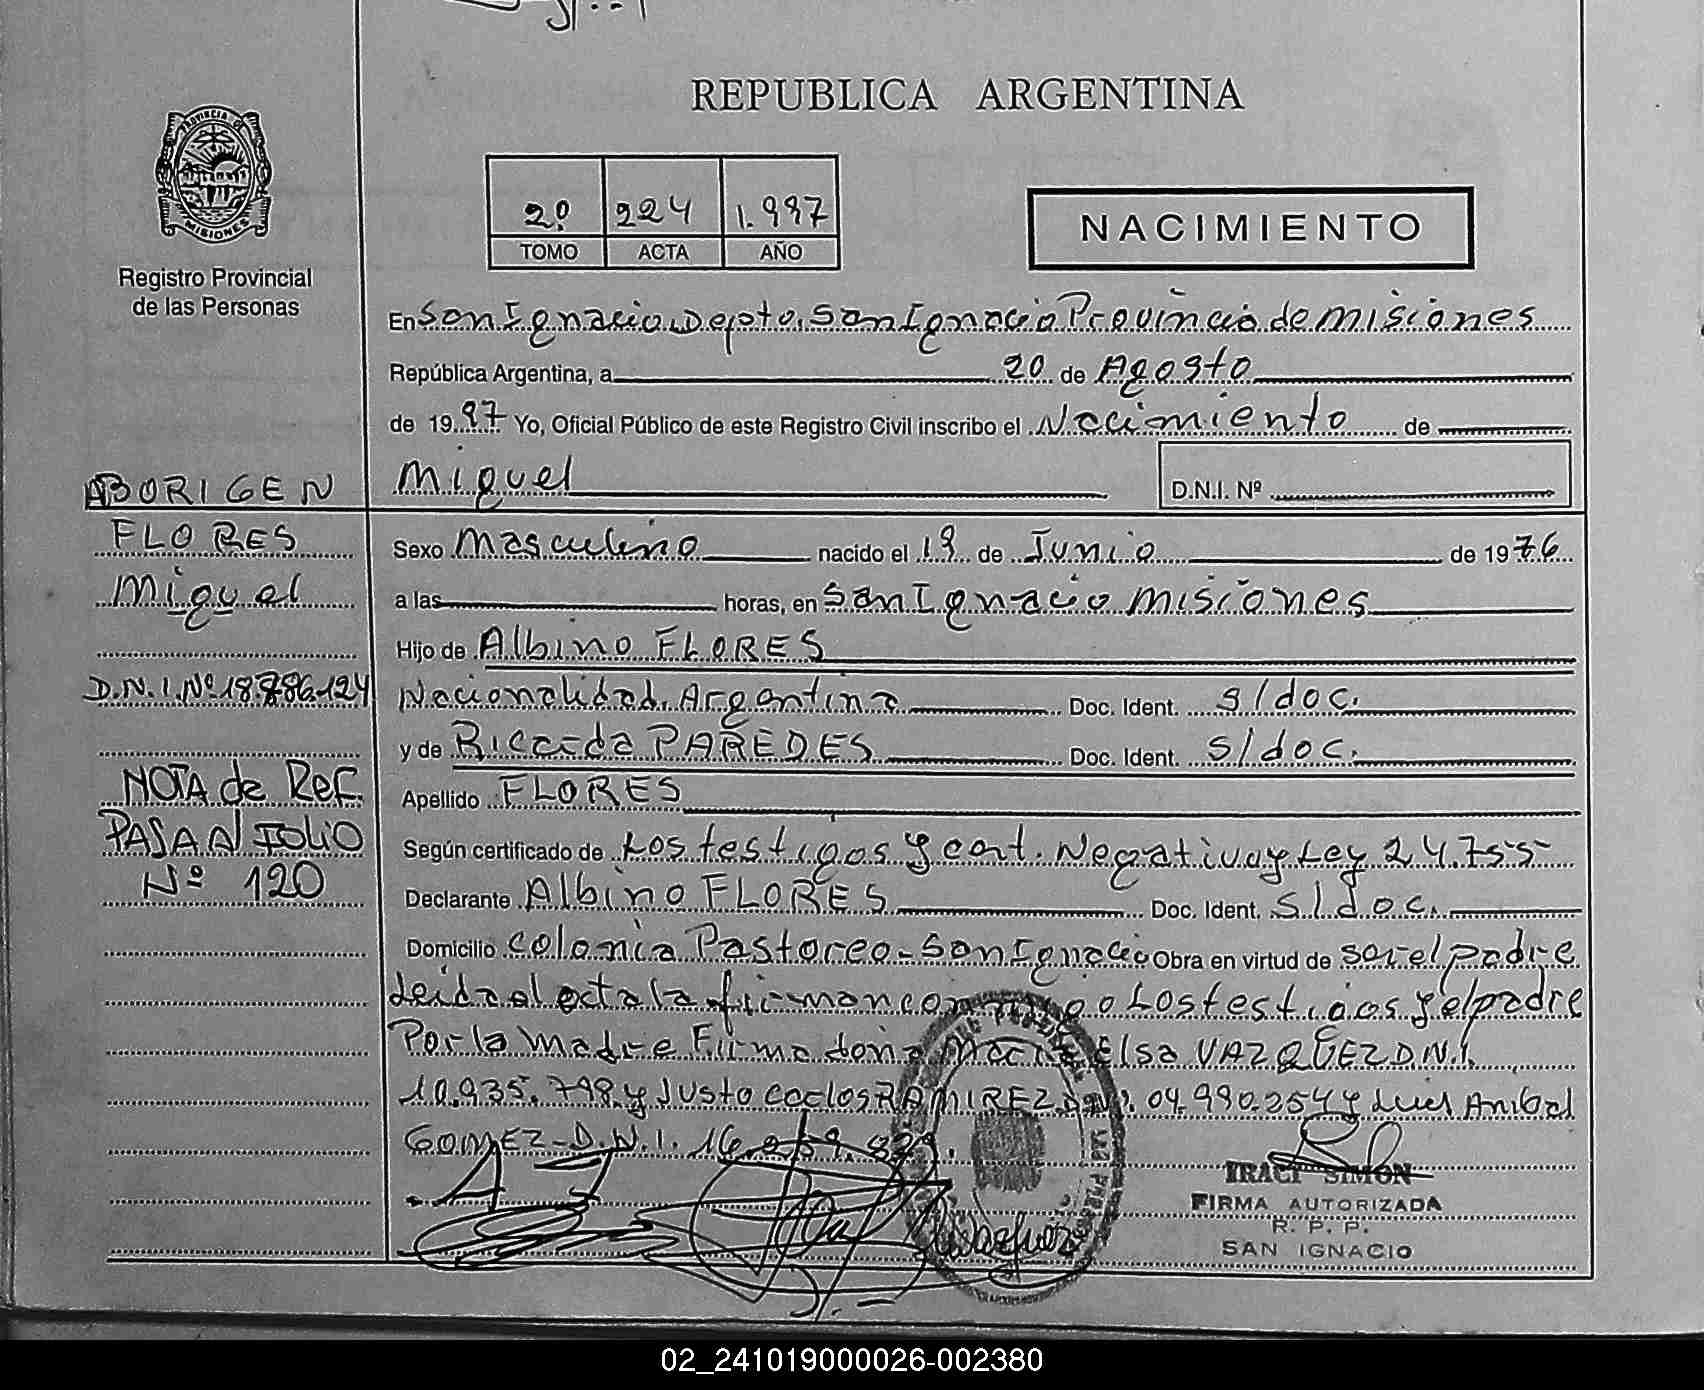 REPUBLICA ARGENTINA
PROVINCIA DE
MISIONES
Registro Provincial
de las Personas
2º 224 1.997
TOMO ACTA AÑO
NACIMIENTO
En San Ignacio, Depto. San Ignacio Provincia de Misiones
República Argentina, a 20 de Agosto
de 1997 Yo, Oficial Público de este Registro Civil inscribo el Nacimiento de
Miguel D.N.I. Nº
ABORIGEN
FLORES
Miguel
D.N.I. Nº 18.786.124
NOTA de Ref.
PASA Al FOLIO
Nº 120
Sexo Masculino nacido el 19 de Junio de 1976
a las horas, en San Ignacio Misiones
Hijo de Albino FLORES
Nacionalidad Argentina Doc. Ident. s/doc.
y de Ricarda PAREDES Doc. Ident. s/doc.
Apellido FLORES
Según certificado de Los testigos y cert. Negativa y Ley 24.755
Declarante Albino FLORES Doc. Ident. S/doc.
Domicilio Colonia Pastoreo - San Ignacio Obra en virtud de ser el padre
Leída el acta la firman conmigo Los testigos y el padre
Por la Madre Firma doña María Elsa VAZQUEZ D.N.I.
10.935.798 y Justo Carlos RAMIREZ D.N.I. 04.990.254 y Luis Anibal
GOMEZ - D.N.I.
IRACI SIMON
FIRMA AUTORIZADA
R. P. P.
SAN IGNACIO
02_241019000026-002380